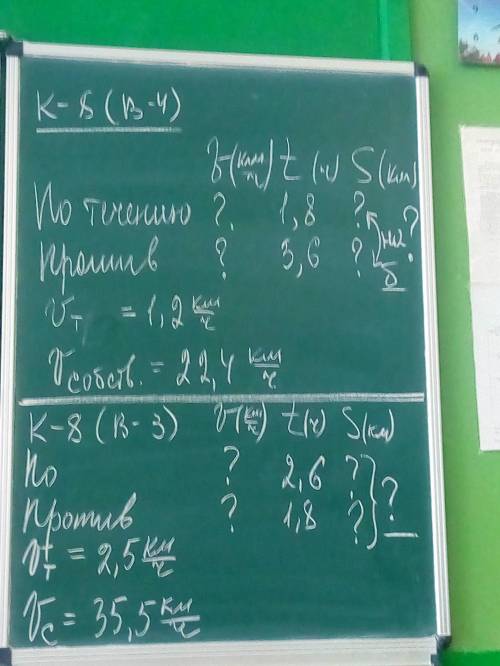 К-8 (В-4)
V(км/ч) t (ч) S(км)
По течению ? 1,8 ?
Против ? 3,6 ? на ?
б
Vт = 1,2 км/ч
Vсобств. = 22,4 км/ч
К-8 (В-3) V(км/ч) t(ч) S(км)
По ? 2,6 ?
Против ? 1,8 ? } ?
Vт = 2,5 км/ч
Vс = 35,5 км/ч